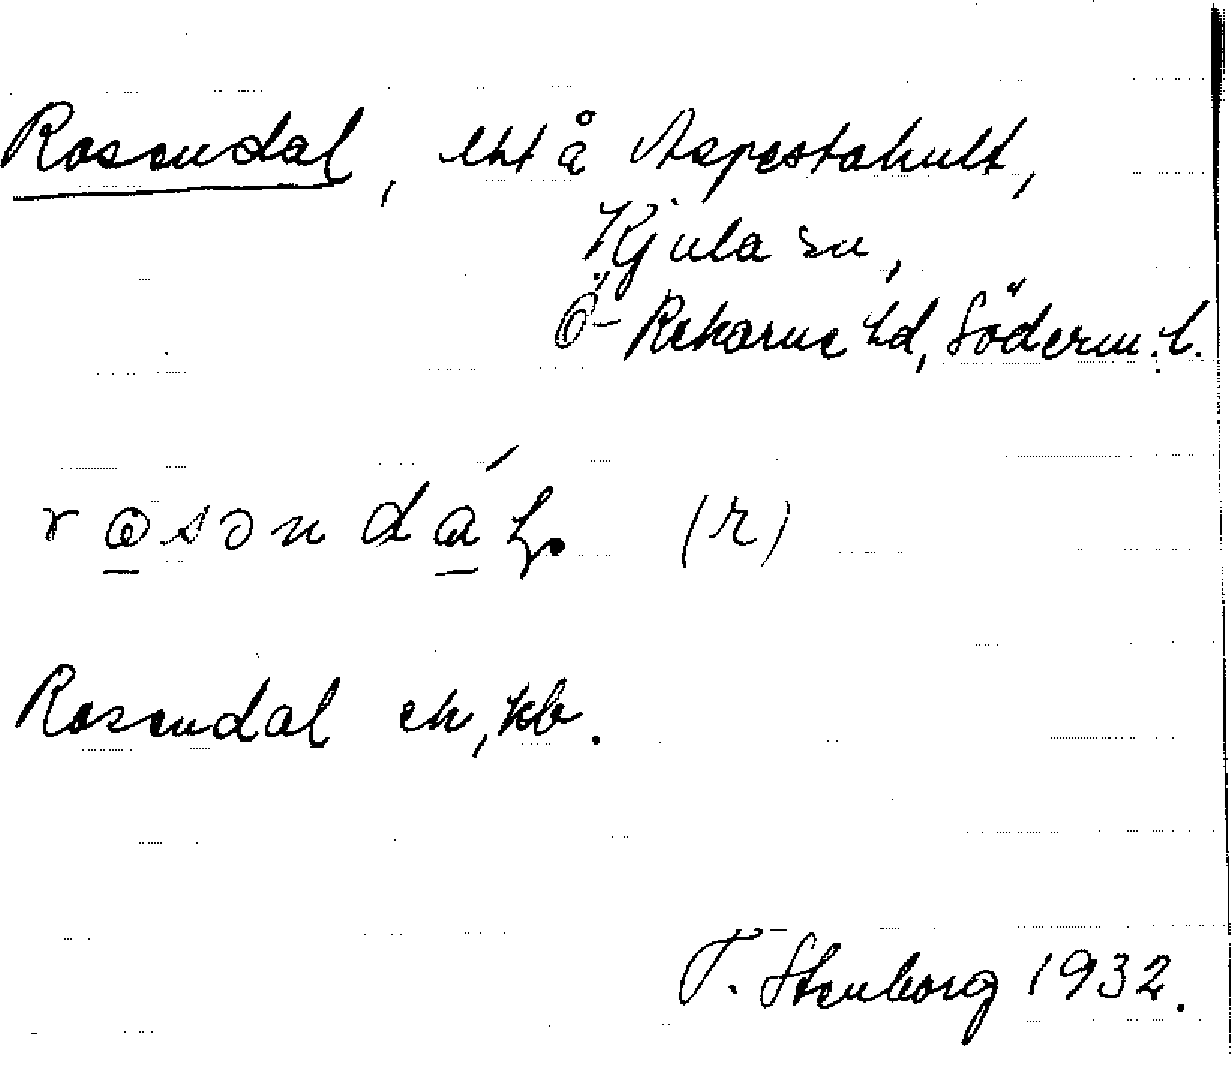 Rosendal, lht å Aspestahult,
Kjula sn,
Ö-Rekarne hd, Söderm. l.
rosəndáɫ. (r)
Rosendal ek, kb.
T. Stenborg 1932.